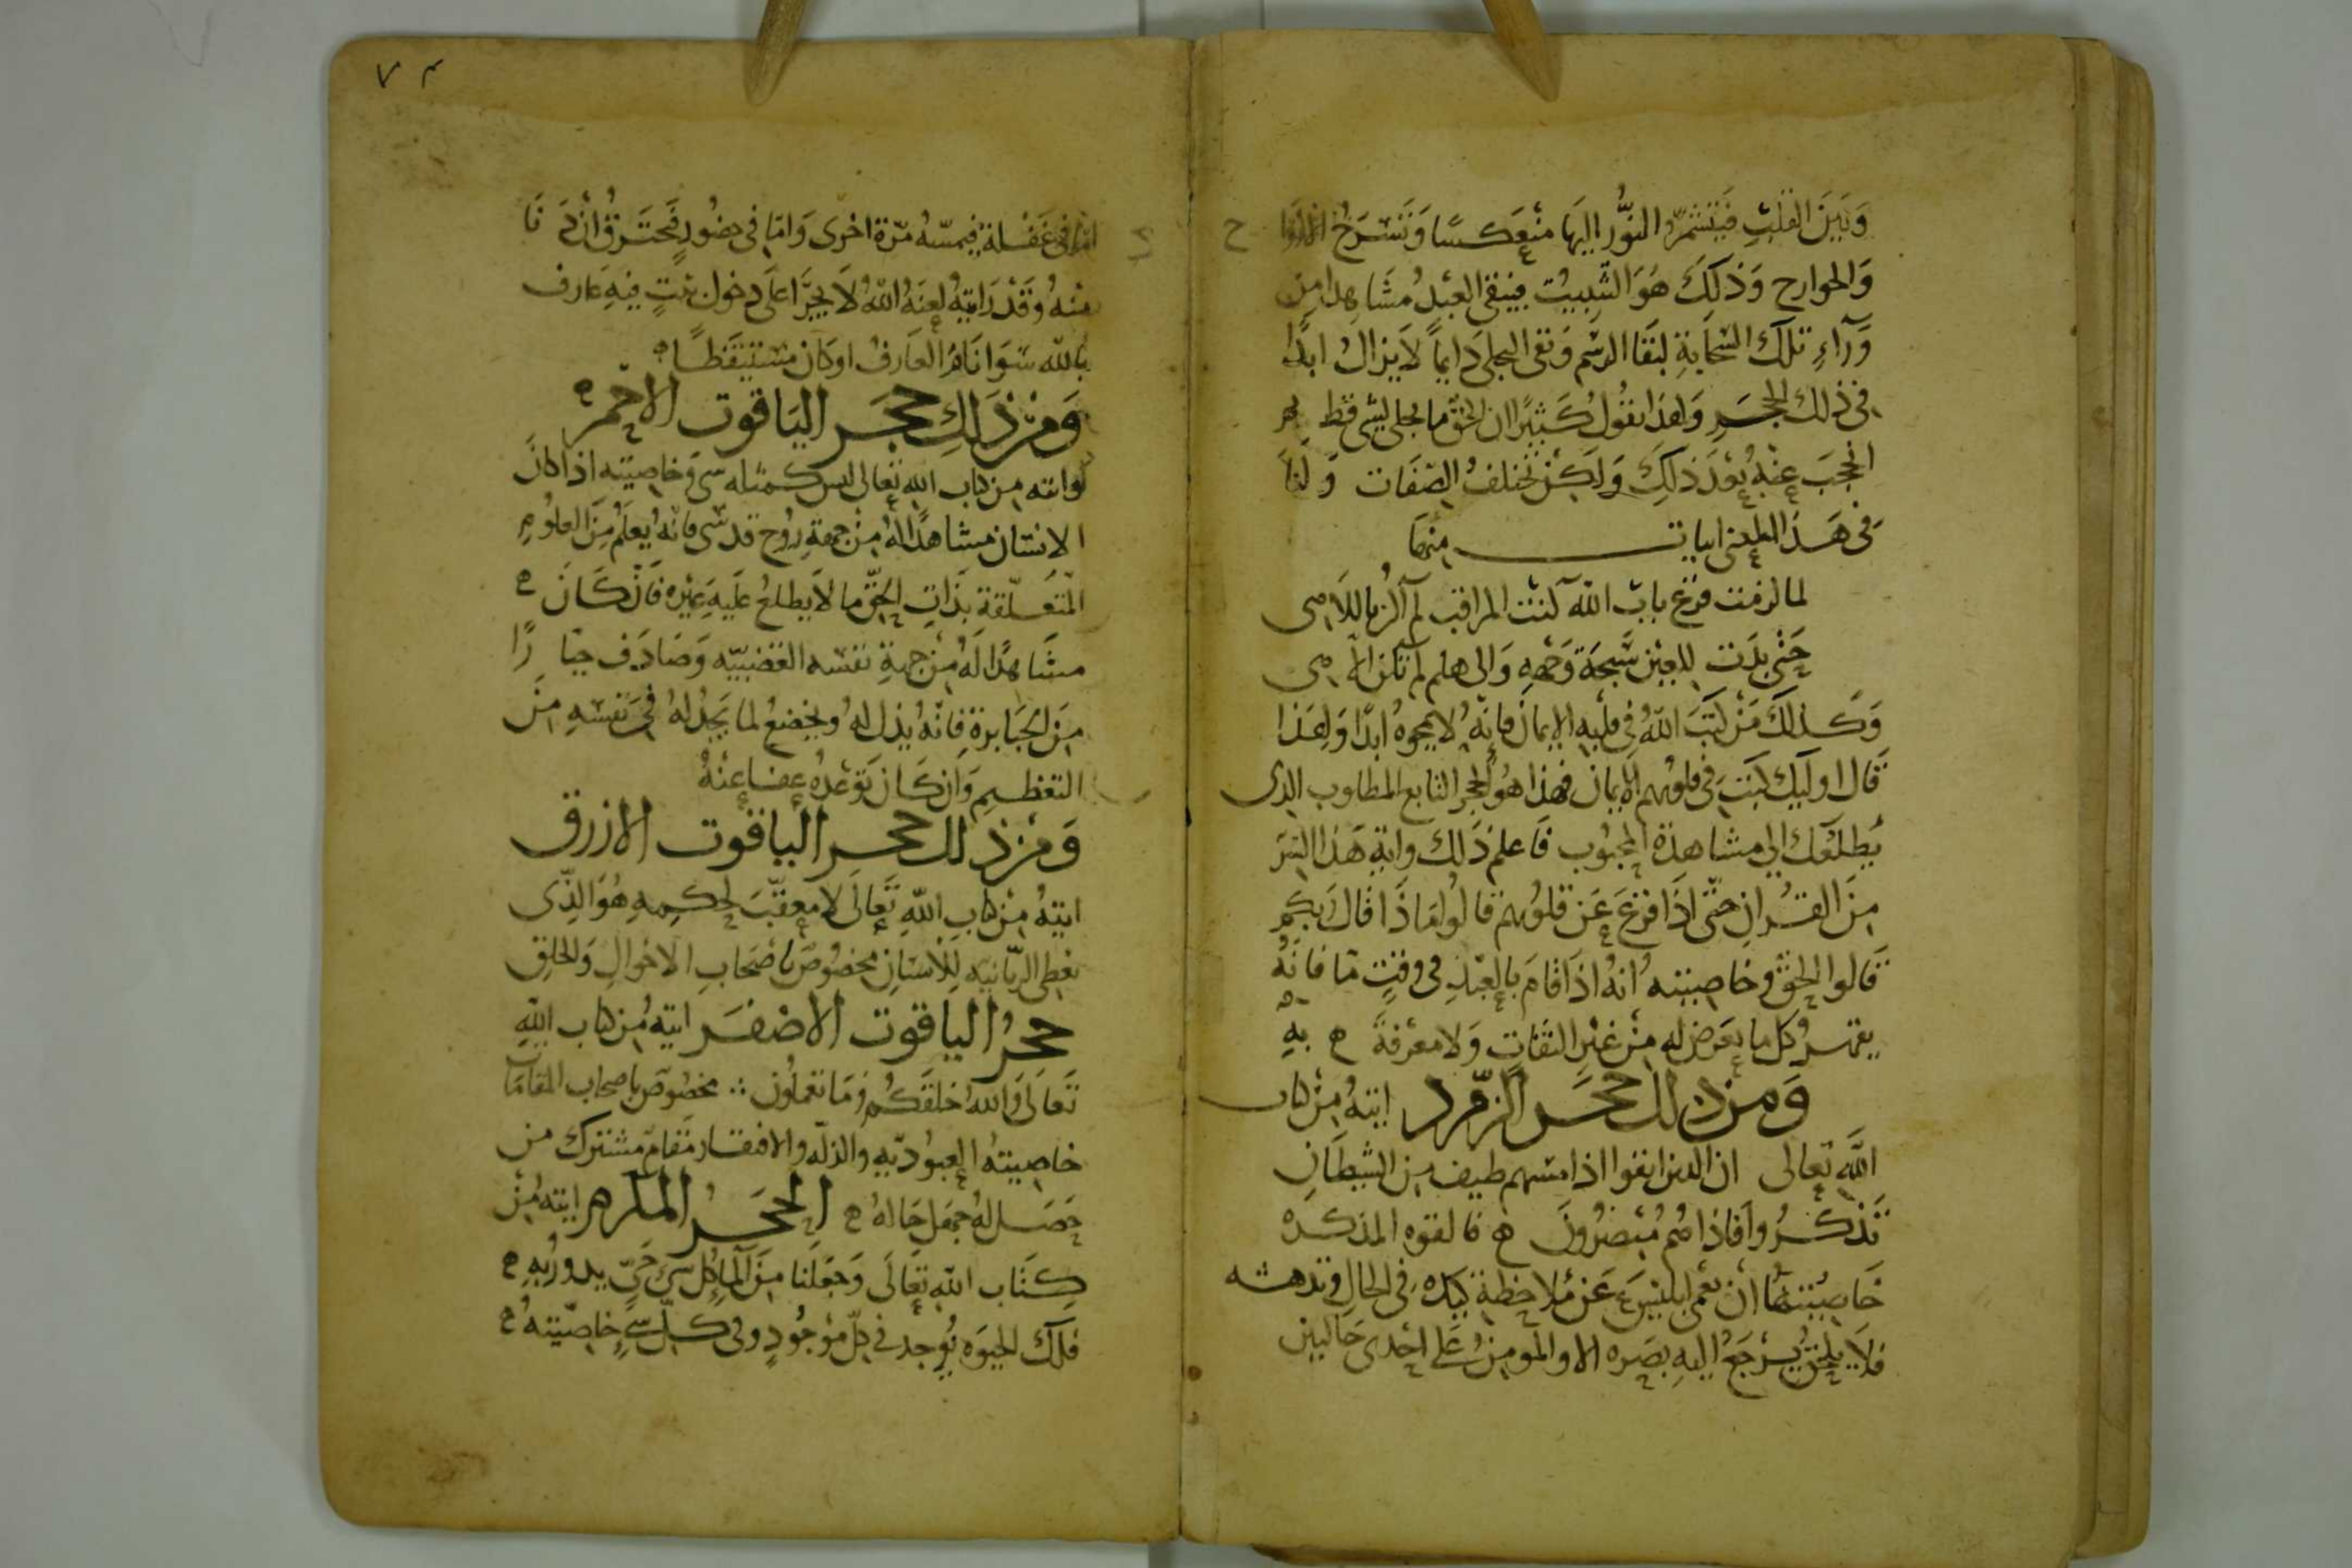 وَبَيْنَ القَلْبِ فَيَنتَشِرُ النُّورُ اليهَا مُنْعَكسًا وَتَسْرَحُ
وَالجوارح وَذلِكَ هُوَ التثبيت فيبقى العَبْدُ مُشَاهِدا مِن
وَرآءِ تلكَ السّحَابَةِ لبَقَا الرسْم وَبقى التجلى دَايماً لاَ يزالُ ابدًا
فى ذلك الحجَرِ وَلهذا يقولُ كَثِيرًا ان الحقّ ما تجلى لشى قط ثم
انحجَبَ عنهُ بَعْدَ ذلِكَ وَلَكِنْ تختلفُ الصّفَات وَ لنَا
فى هَذا المعنى ابيات منهَا
لما لزمت قرْعَ بابَ اللّه كنتُ المراقب لم اكُن باللاهى
حَتى بدَت للعَيْن سُبحَة وَجْههِ وَالى هلم لم تكن الا هى
وَكَذلكَ مَنْ كتَبَ اللّهُ فى قلبه الايمان فانّهُ لا يمحوهُ ابدًا وَلهَذا
قال اوليك كَتبَ فى قلوبهم الايمان فهذا هُوَ الحجر التابع المطلوب الذى
يُطلعكَ الى مشاهدَة المحبُوب فاعلم ذَلك واية هَذا السرّ
مِنَ القرآنِ حتّى اذَا فُزعَ عَن قلوبهم قالوا مَاذا قال رَبكم
قَالوا الحقّ وخاصيته انهُ اذَا قامَ بالعَبْدِ فى وقتٍ ما فانهُ
يقهرُ كل ما يعَرض له مِنْ غَيْر التفاتٍ وَلا معرفةً ه بهِ
وَمن ذلك حجَر الزمّرد ايتهُ مِنْ كتاب
اللّه تعَالى ان الذين اتقوا اذا مسّهم طيف من الشيطَانِ
تَذكرُوا فَاذا هُم مُبْصرُونَ ه فالقوه المذكره
خاصِيتهَا انْ تعْمى ابليسَ عَن مُلاحظةِ كيده فى الحالِ وتدهشه
فلاَ يرْجَعُ اليهِ بصَره الا والمومِنُ عَلى احْدى حَالين
٧٣
امّا فى غَفْلةٍ فيمسّهُ مَرّةً اخْرى وَامّا فى حضُورٍ فيحترَقُ انْ دَ نَا
منهُ وَقَدْ رَايتهُ لعَنَهُ اللّهُ لاَ يتجرَّا عَلى دخول بَيتٍ فيهِ عَارف
باللّه سَوا نَامَ العَارفُ او كان مسْتيقظًا ه
وَمِنْ ذلكَ حجَر اليَاقوت الاحمَر ه
ايته من كتاب اللّه تعَالى ليس كمثله شى وَخاصيته اذا كانَ
الانسان مشاهدًا لهُ مِنْ جهةِ رُوح قدسى فانّهُ يُعلَمُ مِنَ العلوُم
المتعَلّقةِ بذَاتِ الحَقّ ما لاَ يطلعُ عَليهِ غيره فَانْ كَانَ ه
مشَاهدًا لَهُ مِنْ جهةِ نفسه الغضبيّه وَصَادَف جبّا رًا
مِنَ الجبَابرةِ فانّهُ يذلُ لهُ ويخضعُ لما يجدُ لهُ فى نَفسهِ مِنْ
التعْظيمِ وَان كَانَ توَعدهُ عفا عنْهُ
وَمِنْ ذلك حجر الياقوت الازرق
ايتهُ مِنْ كتابِ اللّه تَعالَى لا معقّبَ لحكمهِ هُوَ الّذى
يعْطى الربّانيه للاْنسَان مخصُوص باصَحاب الاحوالِ وَالخلق
حجرُ الياقوت الاصْفَر ايتهُ مِنْ كتاب اللّهِ
تَعَالَى وَاللّهُ خلقَكُم وَمَا تعملوُن ∴ مخصُوص باصحاب المقَامَات
خاصيتهُ العبُوديّهِ والذلّه والافتقار مَقام مشترك مَن
حَصَل لهُ جهَل حَالهُ ه الحَجَرُ المكرم ايته مِنْ
كتَاب اللّه تعَالَى وَجَعَلنَا مِنَ المآءِ كل شئ حَىّ يدورُ بهِ ه
فلكَ الحيَوَه يُوجد فى كلّ مَوجُودٍ وفى كلّ شئٍ خاصّيتهُ ه